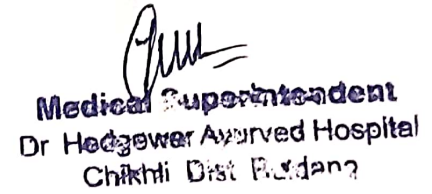 Medical Superintendent
Dr Hedgewer Ayurved Hospital
Chikhli Dist Buldana